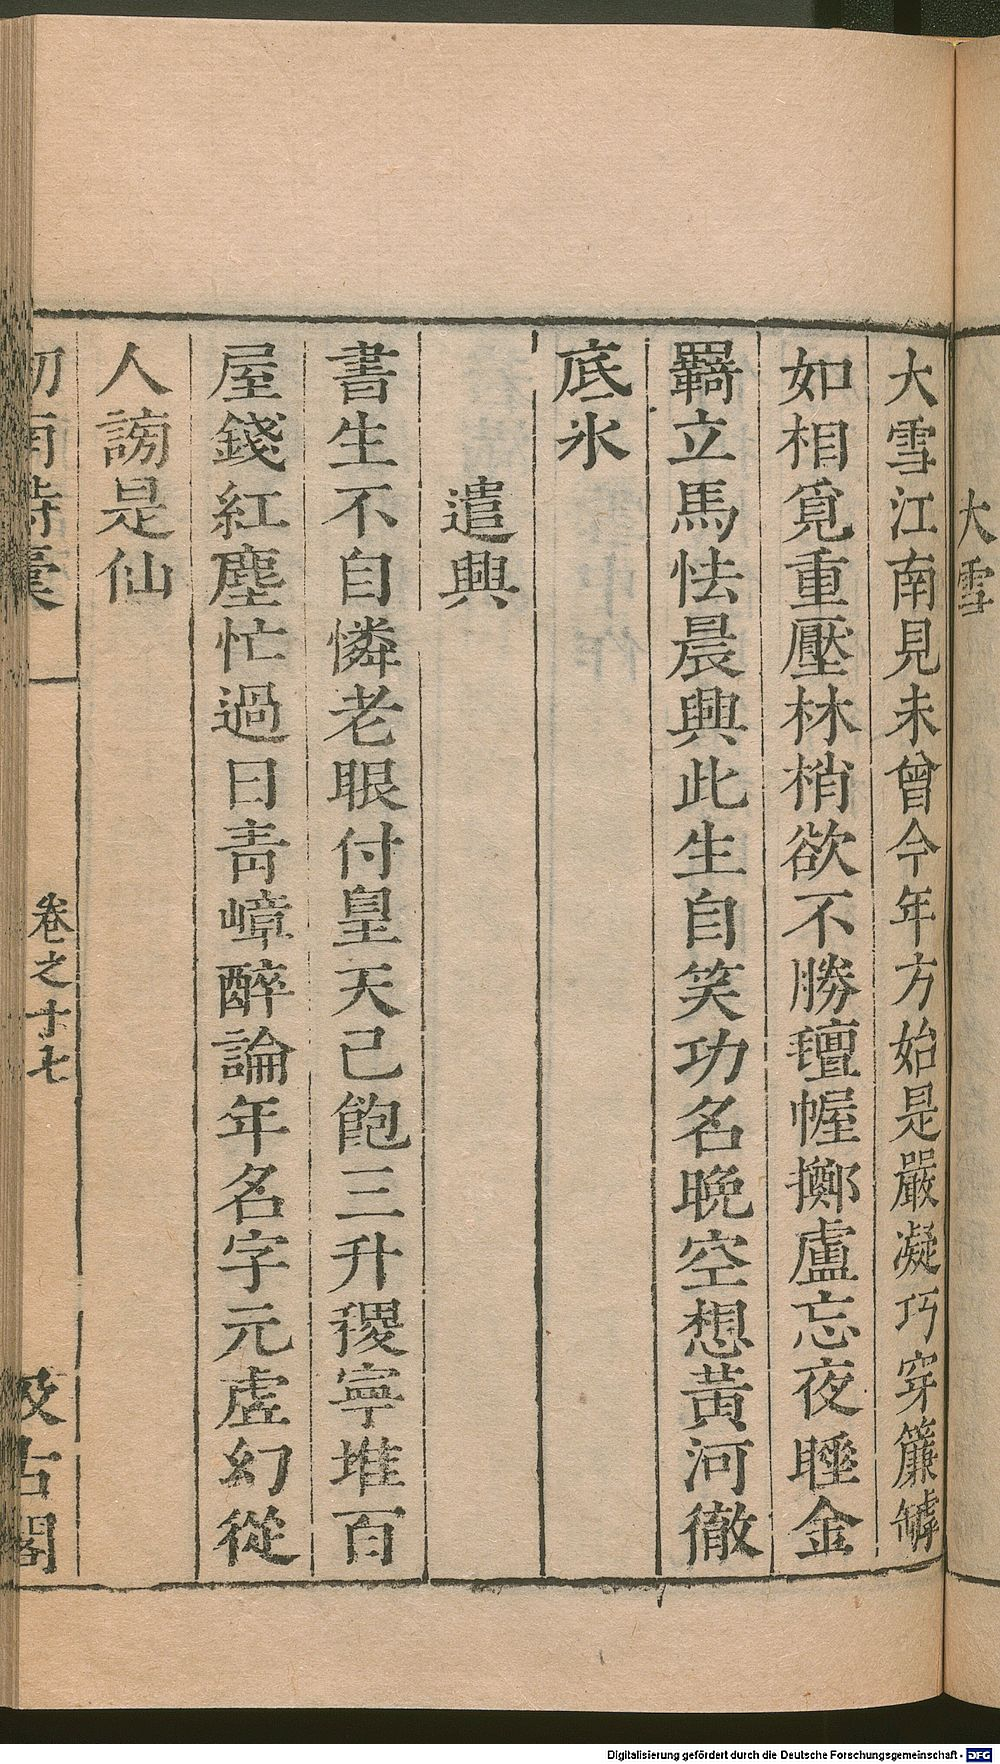 大雪
大雪江南見未曾今年方始是嚴凝巧穿簾罅
如相覓重壓林梢欲不勝氊幄擲盧忘夜睡金
羇立馬怯晨興此生自笑功名晚空想黃河徹
底氷
遣興
書生不自憐老眼付皇天己飽三升稷寧堆百
屋錢紅塵忙過日靑嶂醉論年名字元虛幻從
人謗是仙
卷之十七
汲古閣
Digitalisierung gefördert durch die Deutsche Forschungsgemeinschaft - DFG